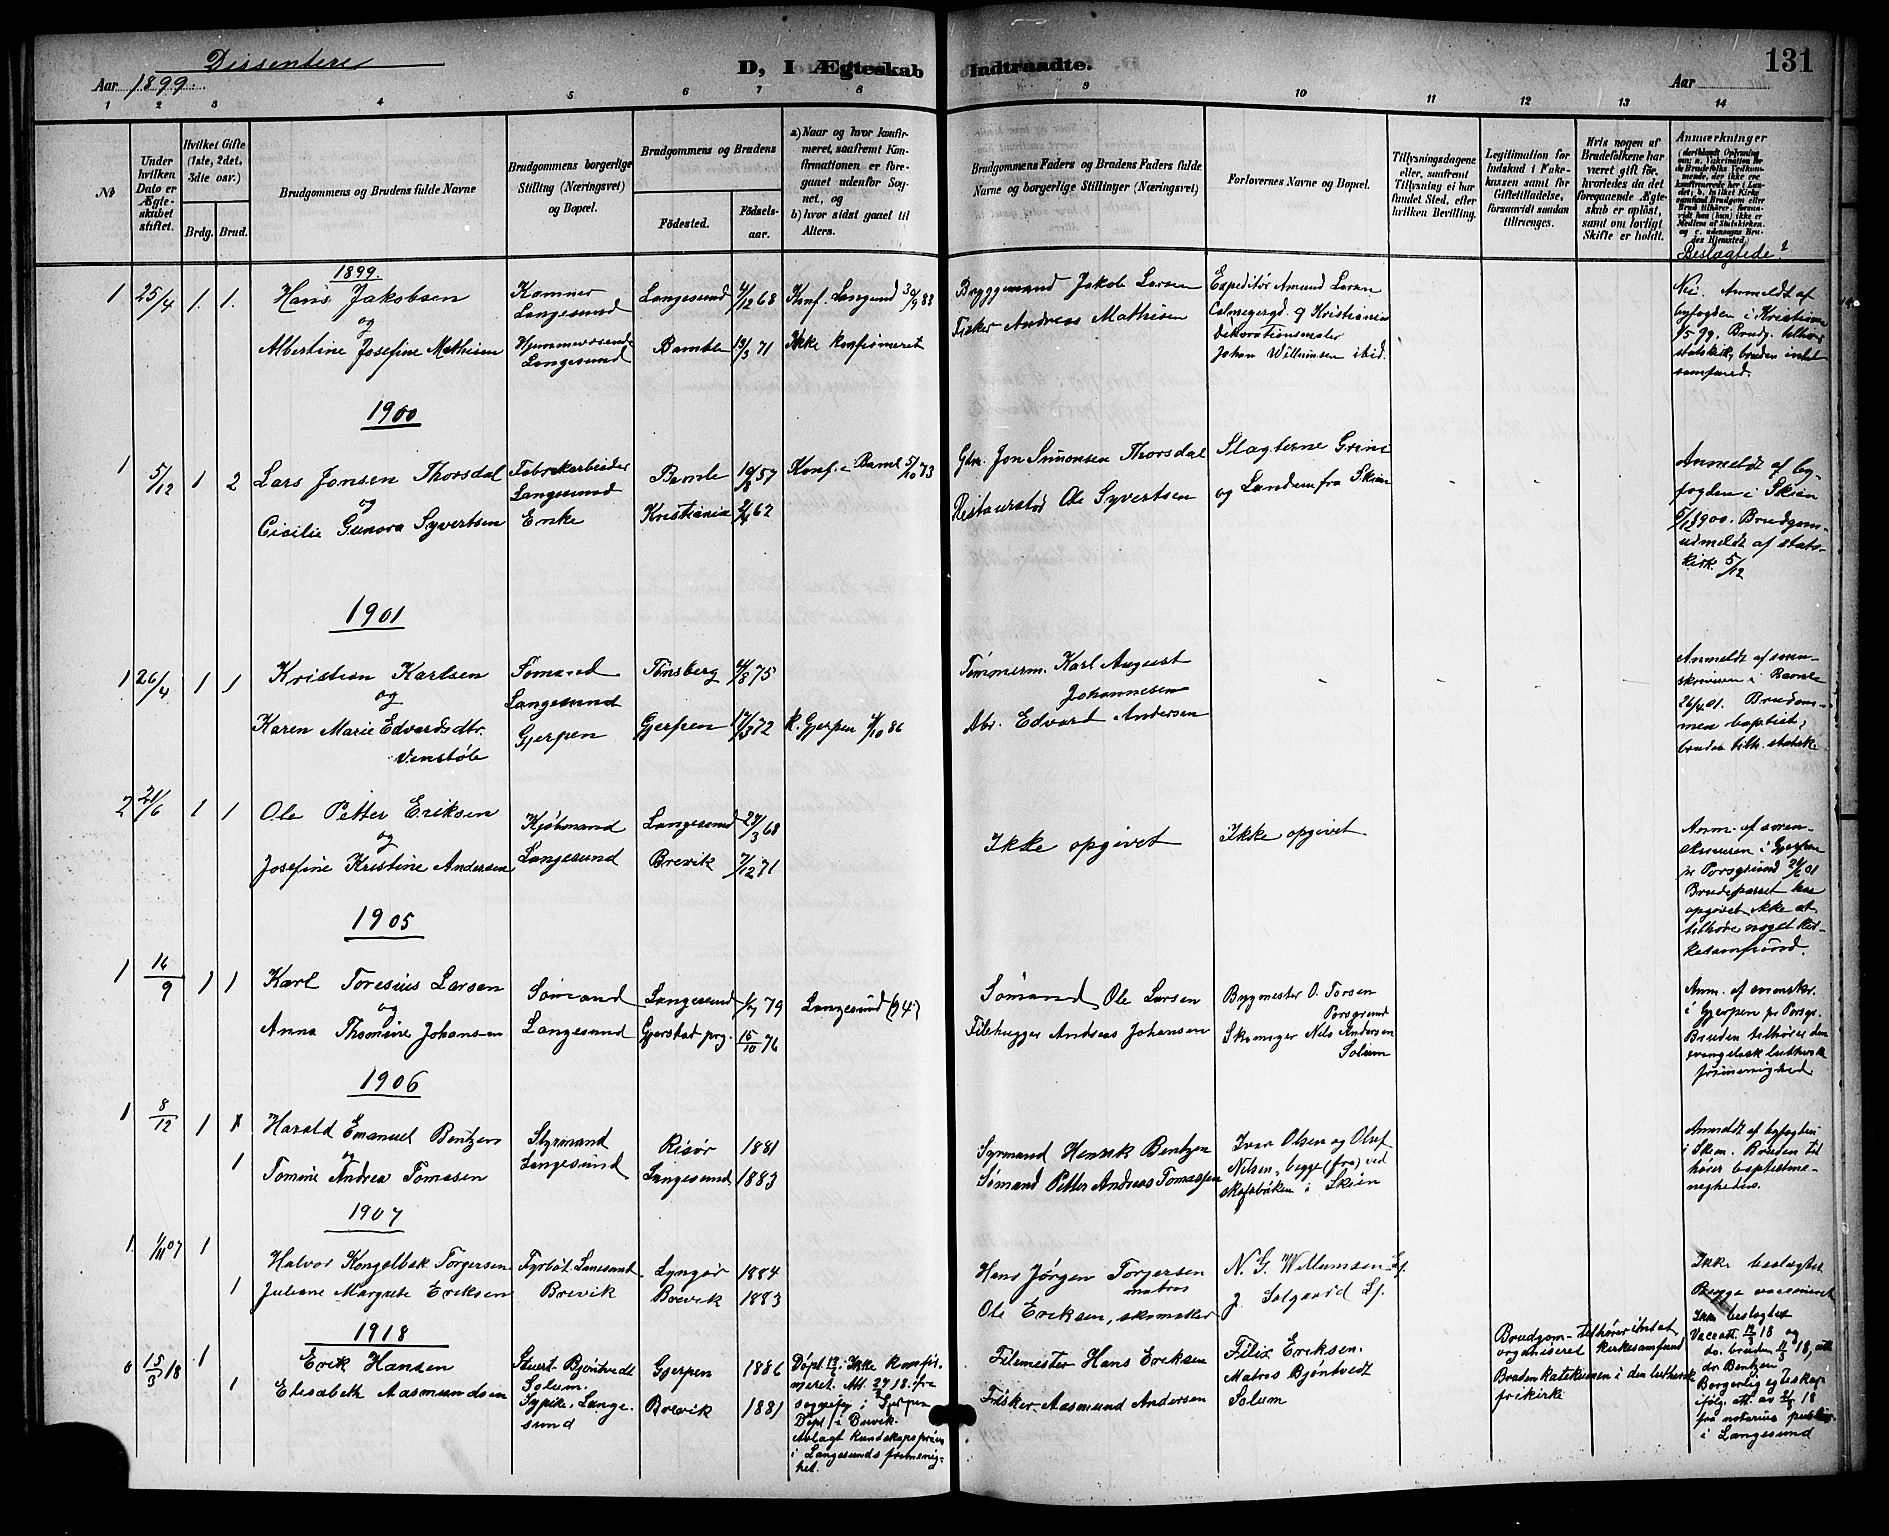 Dissentere
Aar 1899.
D, I Ægteskab Indtraadte.
131
Aar
1 2 3 4 5 6 7 8 9 10 11 12 13 14
No
Under hvilken Dato er Ægteskabet stiftet.
Hvilket Gifte (1ste, 2det, 3die osv.)
Brdg. Brud.
Brudgommens og Brudens fulde Navne
Brudgommens borgerlige Stilling (Næringsvei) og Bopæl.
Brudgommens og Brudens
Fødested.
Fødselsaar.
a) Naar og hvor konfirmeret, saafremt Konfirmationen er foregaaet udenfor Sognet, og
b) hvor sidst gaaet til Alters.
Brudgommens Faders og Brudens Faders fulde Navne og borgerlige Stillinger (Næringsvei)
Forlovernes Navne og Bopæl.
Tillysningsdagene eller, saafremt Tillysning ei har fundet Sted, efter hvilken Bevilling.
Legitimation for Indskud i Enkekassen samt for Giftetilladelse, forsaavidt saadan tiltrænges.
Hvis nogen af Brudefolkene har været gift før, hvorledes da det foregaaende Ægteskab er opløst, samt om lovligt Skifte er holdt.
Anmærkninger
Beslægtede?
1899.
1 25/4 1. 1. Hans Jakobsen
og
Albertine Josefine Mathisen
Langesund
Langesund
Langesund 4/12 68
Bamble 13/3 71
Konf. Langesund 30/9 83
Ikke konfirmeret
Bryggemand Jakob Larsen
Fisker Andreas Mathisen
Expeditør Amund Larsen
Calmeyergd. 9 Kristiania
Dekorationsmaler
Johan Willumsen ibid.
Nei. Anmeldt af
byfogden i Kristiania
1/5 99. Brudg. tilhører
statskirk, bruden intet
samfund.
1900
1 5/12 1 2 Lars Jonsen Thorsdal
og
Cicilie Gunora Syvertsen
Fabrikarbeider
Langesund
Enke
Bamle 19/8 57
Kristiania 2/4 62
Konf. i Baml 5/10 73
Gbr. Jon Simonsen Thorsdal
Restauratør Ole Syvertsen
Slagterne Grini
og Landem fra Skien
Anmeldt af by-
fogden i Skien
5/12 1900. Brudgom
udmeldt af stats-
kirk. 5/12
1901
1 26/4 1 1 Kristian Karlsen
og
Karen Marie Edvardsdtr.
Venstøb
Sømand
Langesund
Gjerpen
Tønsberg 4/8 75
Gjerpen 17/3 72
k. Gjerpen 4/10 86
Tømmerm. Karl August
Johannesen
Arb. Edvard Andersen
Anmeldt af soren-
skriveren i Bamle
26/4 01. Brudgom-
men baptist,
bruden tilh. statsk.
2 21/6 1 1 Ole Petter Eriksen
og
Josefine Kristine Andersen
Kjøbmand
Langesund
Langesund 28/3 68
Brevik 7/12 71
Ikke opgivet
Ikke opgivet
Anm. af soren-
skriveren i Gjerpen
pr Porsgrund 21/6 01
Brudeparret har
opgivet ikke at
tilhøre noget kir-
kesamfund.
1905
1 16/9 1 1 Karl Toresius Larsen
og
Anna Thomine Johansen
Sømand
Langesund
Langesund 1/7 79
Gjerstad prg. 15/10 76
Langesund (94)
Sømand Ole Larsen
Filehugger Andreas Johansen
Bygmester O. Torsen
Porsgrund
Skomager Nils Andersen
Solum
Anm. af sorenskr.
i Gjerpen pr Porsgr.
Bruden tilhører den
evangelisk lutherske
frimenighed
1906
1 8/12 1 Harald Emanuel Bentzen
og
1 Tomine Andrea Tomasen
Styrmand
Langesund
Risør 1881
Langesund 1883
Styrmand Henrik Bentzen
Sømand Petter Andreas Tomassen
Ivar Olsen og Oluf
Nilsen, begge (fra) ved
skofabriken i Skien
Anmeldt af byfogden
i Skien. Bruden til
hører baptistme-
nigheden.
1907
1. 1/11 07 1 Halvor Kongelbek Torgersen
1 Juliane Margrete Eriksen
Fyrbøt. Langesund
Brevik
Lyngør 1884
Brevik 1883
Hans Jørgen Torgersen
matros
Ole Eriksen, skomaker
N. G. Willumsen Lf.
J. Solgaard Lf.
Ikke beslægtet
Begge vaccineret
1918
15/3 18 1 Erik Hansen
1 Elisabeth Aasmundsen
Stuert. Bjøntvedt
Solum.
Sypike. Lange-
sund
Gjerpen 1886
Brevik 1881
Ikke konfir-
meret. Att. 27/2 18. fra
sognepr i Gjerpen
Døpt i Brevik.
Avlagt kundskapsprøve
i Langesunds frimenig-
het.
Filemester Hans Eriksen
Fisker Aasmund Andersen
Filix Eriksen.
Matros Bjøntvedt
Solum
Brudgom tilhører intet
organiseret kirkesamfund
Bruden katekumen i den luthersk
frikirke
Ikke beslægtet
Vacc att. 12/3 18 og
do. bruden 11/3 18, att
dr. Bentzen
Borgerlig egteskap
ifølg. att. av 21/3 18
fra notarius publicus
i Langesund